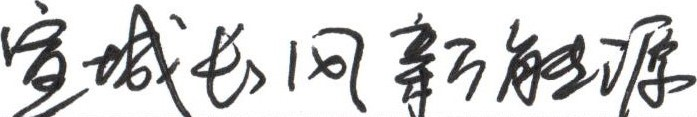 宣城长风新能源